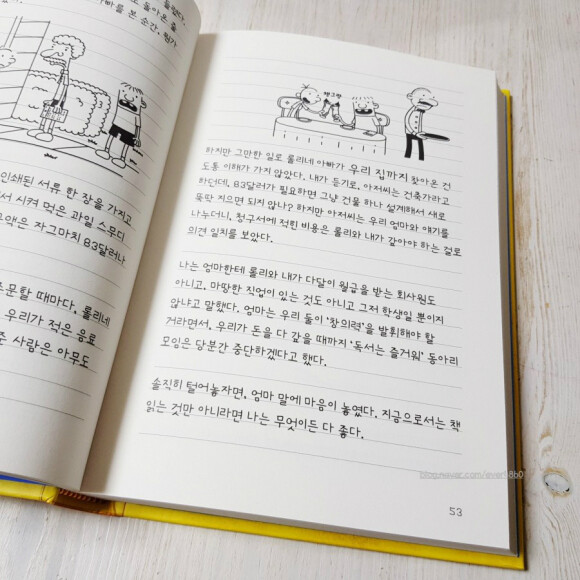 돌아온 줄
아빠를 본 순간, 뭔가
인쇄된 서류 한 장을 가지고
서 시켜 먹은 과일 스무디
금액은 자그마치 83달러나
주문할 때마다, 롤리네
우리가 적은 음료
준 사람은 아무도
쨍그랑
하지만 그만한 일로 롤리네 아빠가 우리 집까지 찾아온 건
도통 이해가 가지 않았다. 내가 듣기로, 아저씨는 건축가라고
하던데, 83달러가 필요하면 그냥 건물 하나 설계해서 새로
뚝딱 지으면 되지 않나? 하지만 아저씨는 우리 엄마와 얘기를
나누더니, 청구서에 적힌 비용은 롤리와 내가 갚아야 하는 걸로
의견 일치를 보았다.
나는 엄마한테 롤리와 내가 다달이 월급을 받는 회사원도
아니고, 마땅한 직업이 있는 것도 아니고 그저 학생일 뿐이지
않냐고 말했다. 엄마는 우리 둘이 '창의력'을 발휘해야 할
거라면서, 우리가 돈을 다 갚을 때까지 '독서는 즐거워' 동아리
모임은 당분간 중단하겠다고 했다.
솔직히 털어놓자면, 엄마 말에 마음이 놓였다. 지금으로서는 책
읽는 것만 아니라면 나는 무엇이든 다 좋다.
53